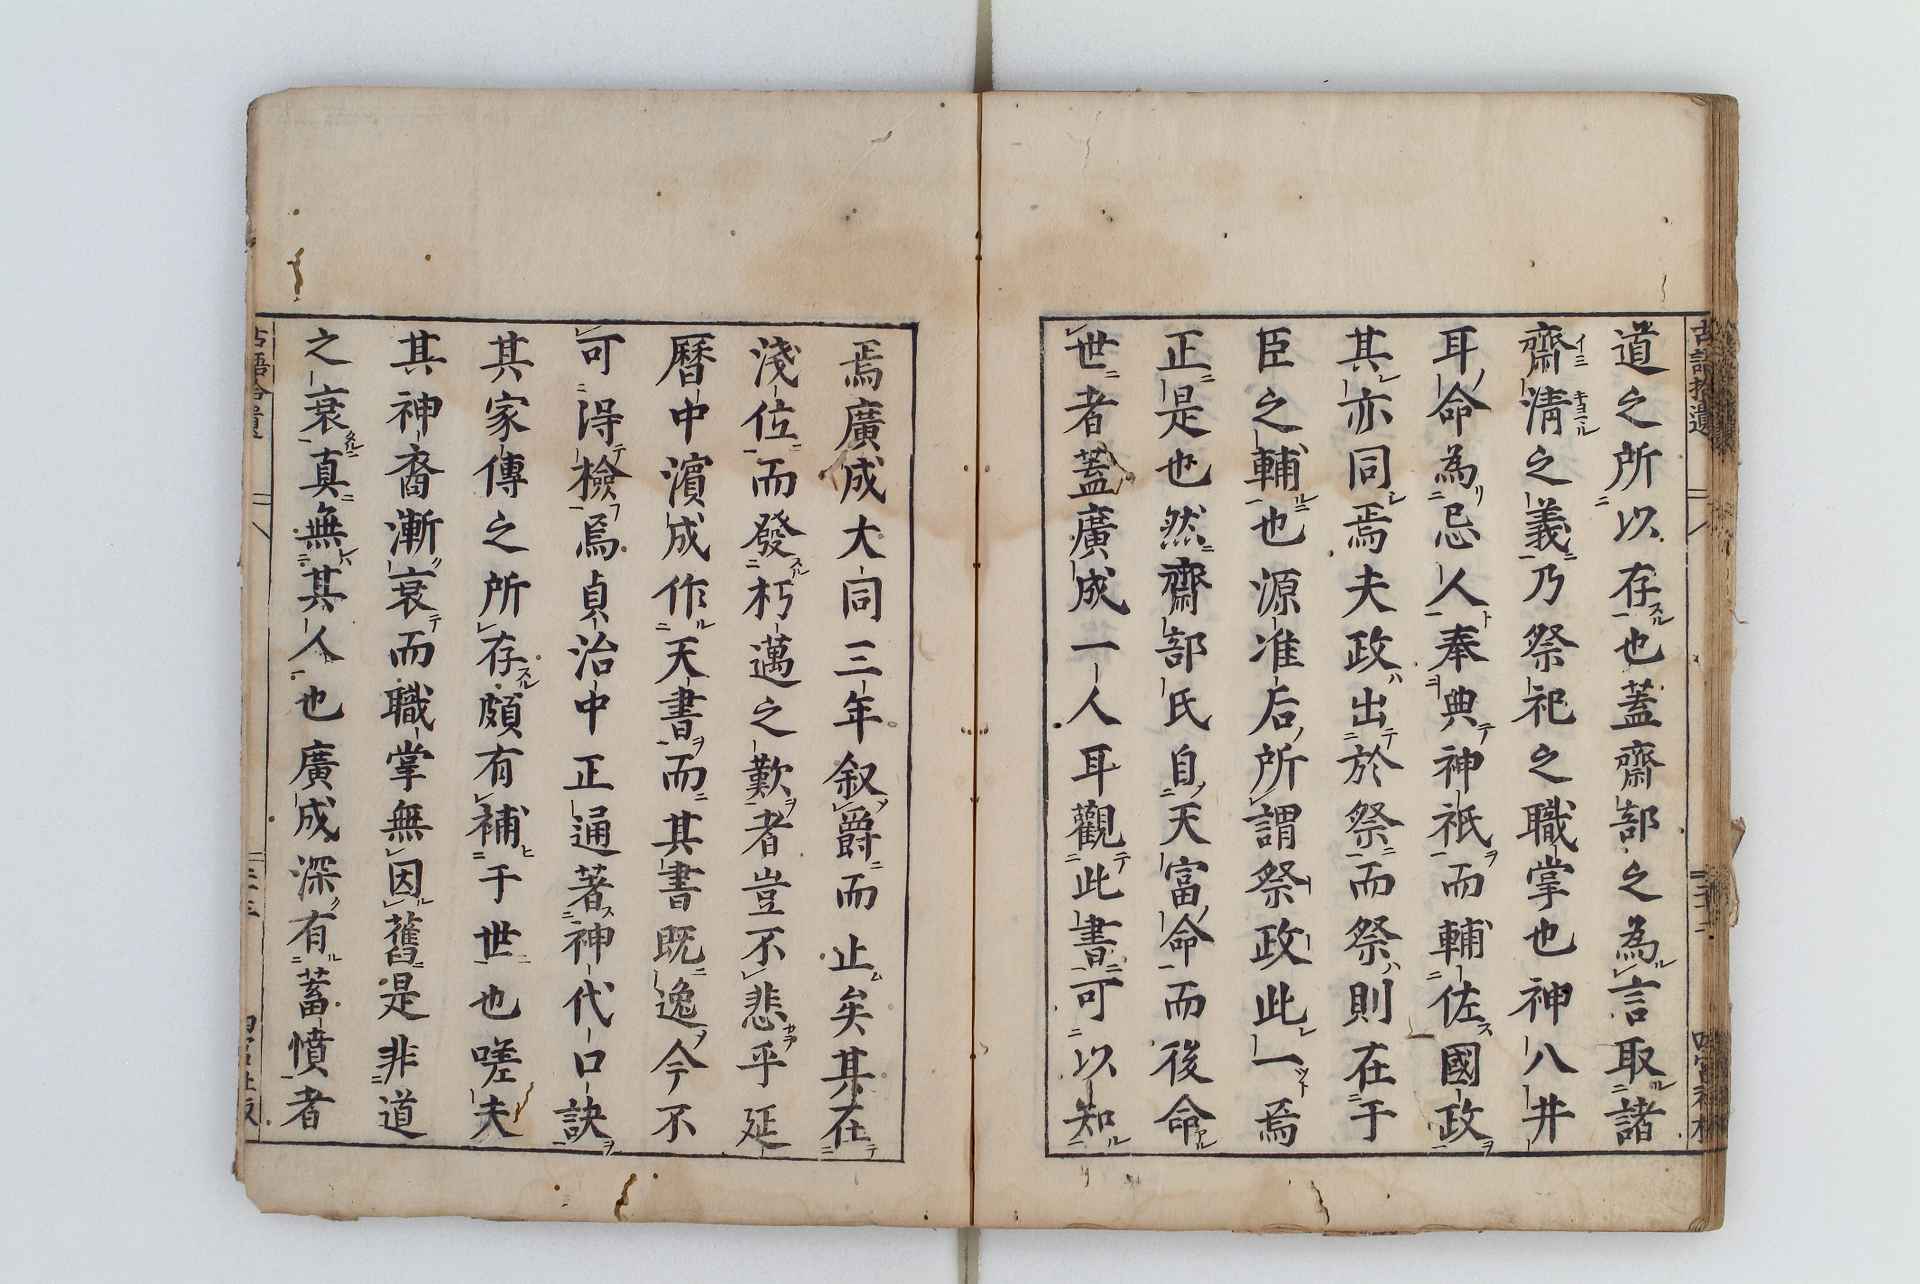 道之所以存也蓋齋部之為言取諸
齋清之義乃祭祀之職掌也神八井
耳命為忌人奉典神祇而輔佐國政
其亦同焉夫政出於祭而祭則在于
臣之輔也源准后所謂祭政此一焉
正是也然齋部氏自天富命而後命
世者蓋廣成一人耳觀此書可以知
焉廣成大同三年叙爵而止矣其在
淺位而發朽邁之歎者豈不悲乎延
曆中濱成作天書而其書既逸今不
可得檢焉貞治中正通著神代口訣
其家傳之所存頗有補于世也嗟夫
其神裔漸衰而職掌無因舊是非道
之衰真無其人也廣成深有蓄憤者
古語拾遺